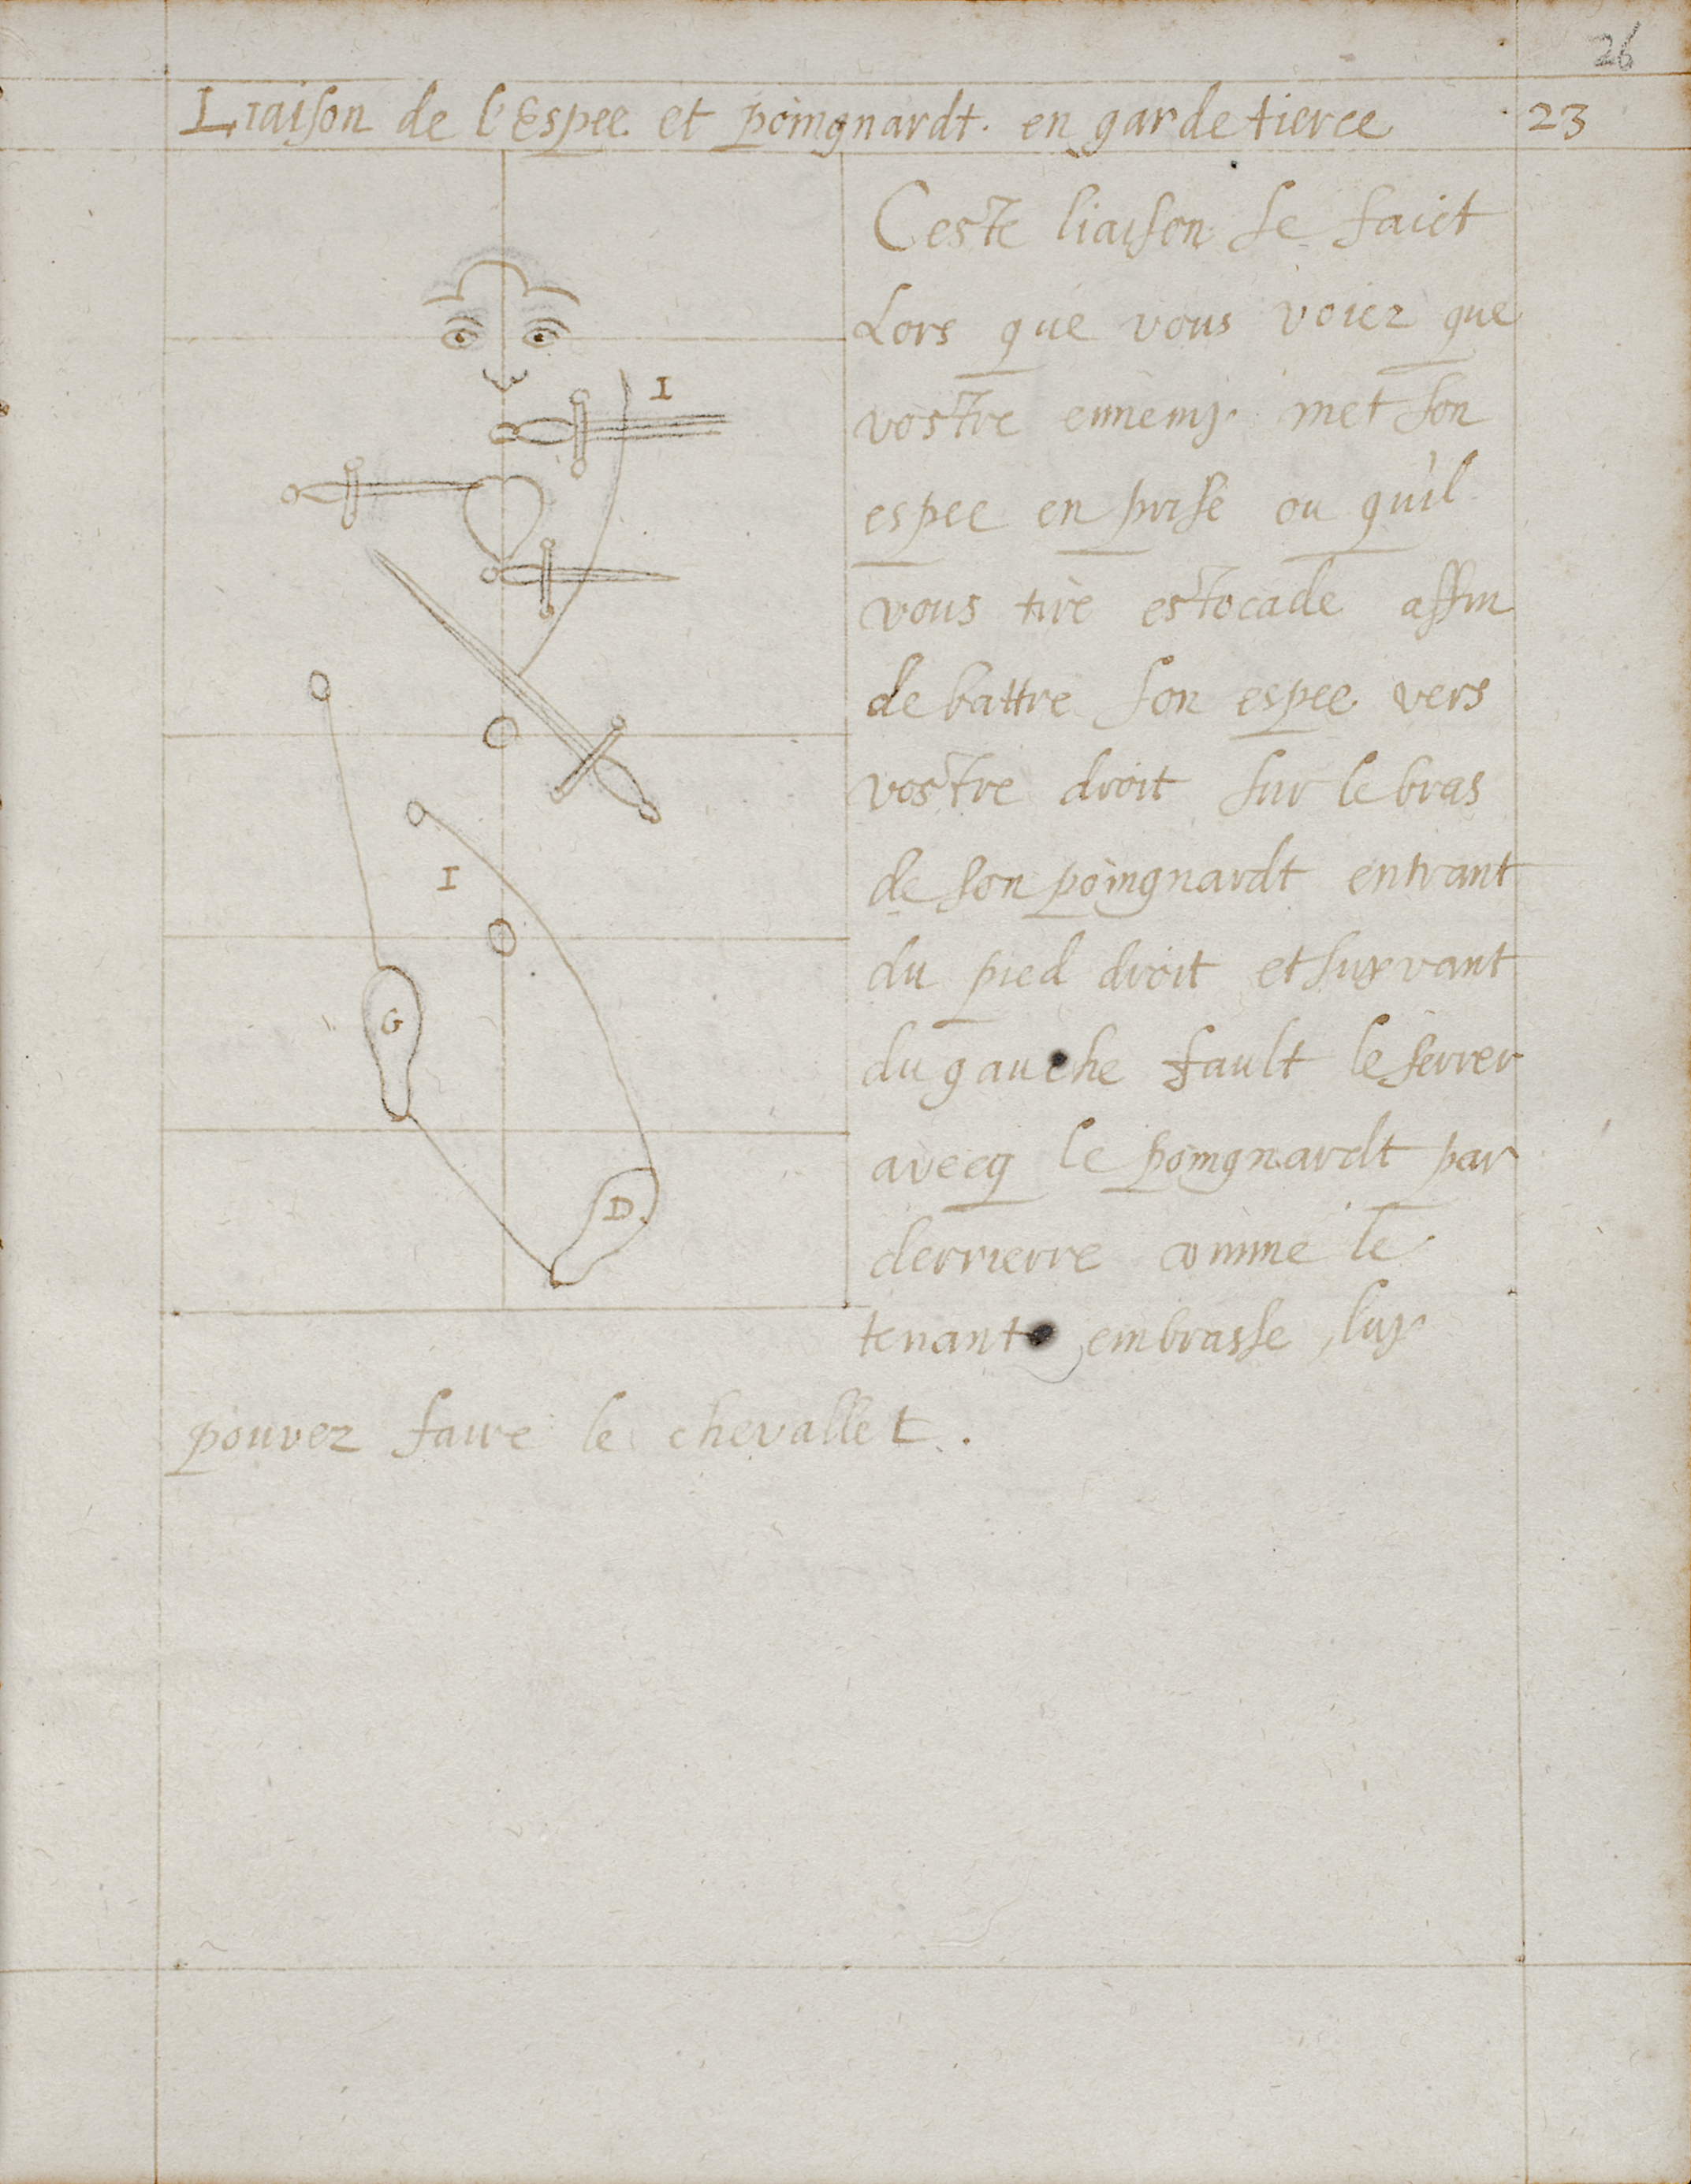 26
Liaison de l'Espee et poingnardt. en garde tierce 23
Ceste liaison se faict
Lors que vous voiez que
vostre ennemy met son
espee en prise ou qu'il
vous tire estocade affin
de battre son espee vers
vostre droit sur le bras
de son poingnardt entrant
du pied droit et suyvant
du gauche fault le serrer
avecq le poingnardt par
derrierre comme le
tenant embrasse luy
pouvez faire le chevallet.
I
I
G
D